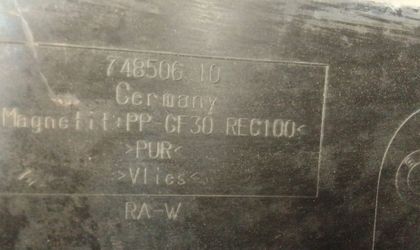 748506 10
Germany
Magnefit:PP-GF30 REC100<
>PUR<
>Vlies<
RA-W